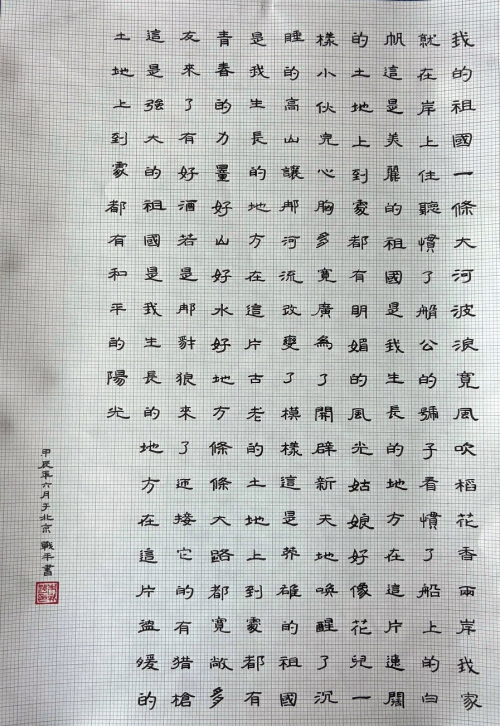 我的祖國一條大河波浪寬風吹稻花香兩岸我家
就在岸上住聽慣了艄公的號子看慣了船上的白
帆這是美麗的祖國是我生長的地方在這片遼闊
的土地上到處都有明媚的風光姑娘好像花兒一
樣小伙兒心胸多寬廣為了開辟新天地喚醒了沉
睡的高山讓那河流改變了模樣這是英雄的祖國
是我生長的地方在這片古老的土地上到處都有
青春的力量好山好水好地方條條大路都寬敞多
友來了有好酒若是那豺狼來了迎接它的有猎槍
這是強大的祖國是我生長的地方在這片溫暖的
土地上到處都有和平的陽光
甲辰年六月于北京 戰平書